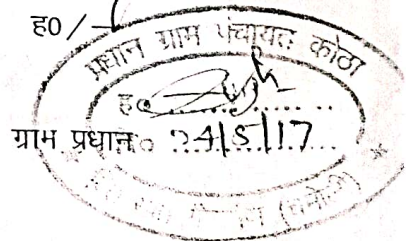 ह0/-
प्रधान ग्राम पंचायत कोठा
ह०
ग्राम प्रधान 24/5/17
(चमोली)